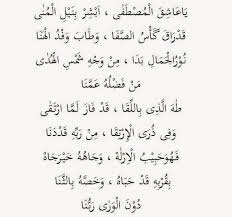 يَاعَاشِقَ الْمُصْطَفَى ، اَبْشِرْ بِنَيْلِ الْمُنَى
قَدْرَاقَ كَأْسُ الصَّفَا ، وَطَابَ وَفْدُ الْهَنَا
نُوْرُالْجَمَالِ بَدَا ، مِنْ وَجْهِ شَمْسِ الْهُدَى
مَنْ فَضْلُهُ عَمَّنَا
طٰهَ الَّذِى بِاللِّقَا ، قَدْ فَازَ لَمَّا ارْتَقَى
وَفِى ذُرَى الْإِرْتِقَا ، مِنْ رَبِّهِ قَدْدَنَا
فَهُوَحَبِيْبُ الْإِلَهْ ، وَجَاهُهُ خَيْرُجَاهْ
بِقُرْبِهِ قَدْ حَبَاهُ ، وَخَصَّهُ بِالثَّنَا
دُوْنَ الْوَرَى رَبُّنَا